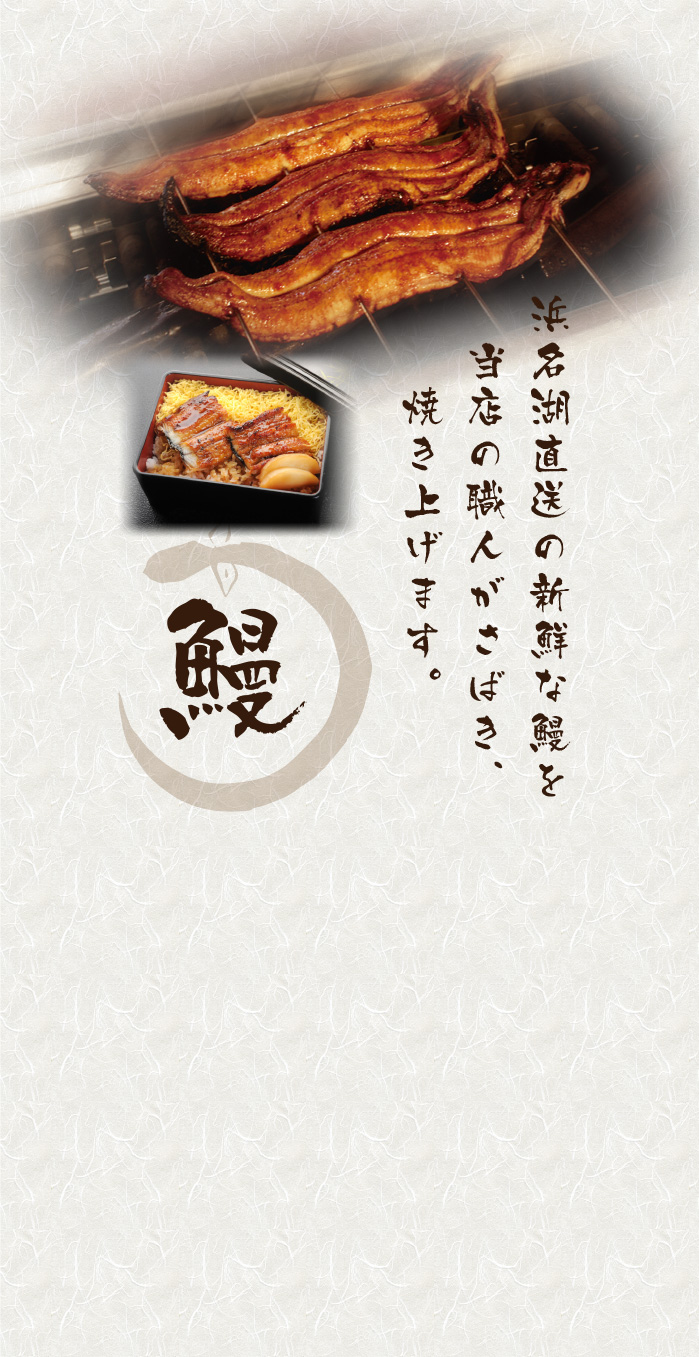 浜名湖直送の新鮮な鰻を
当店の職人がさばき、
焼き上げます。
鰻